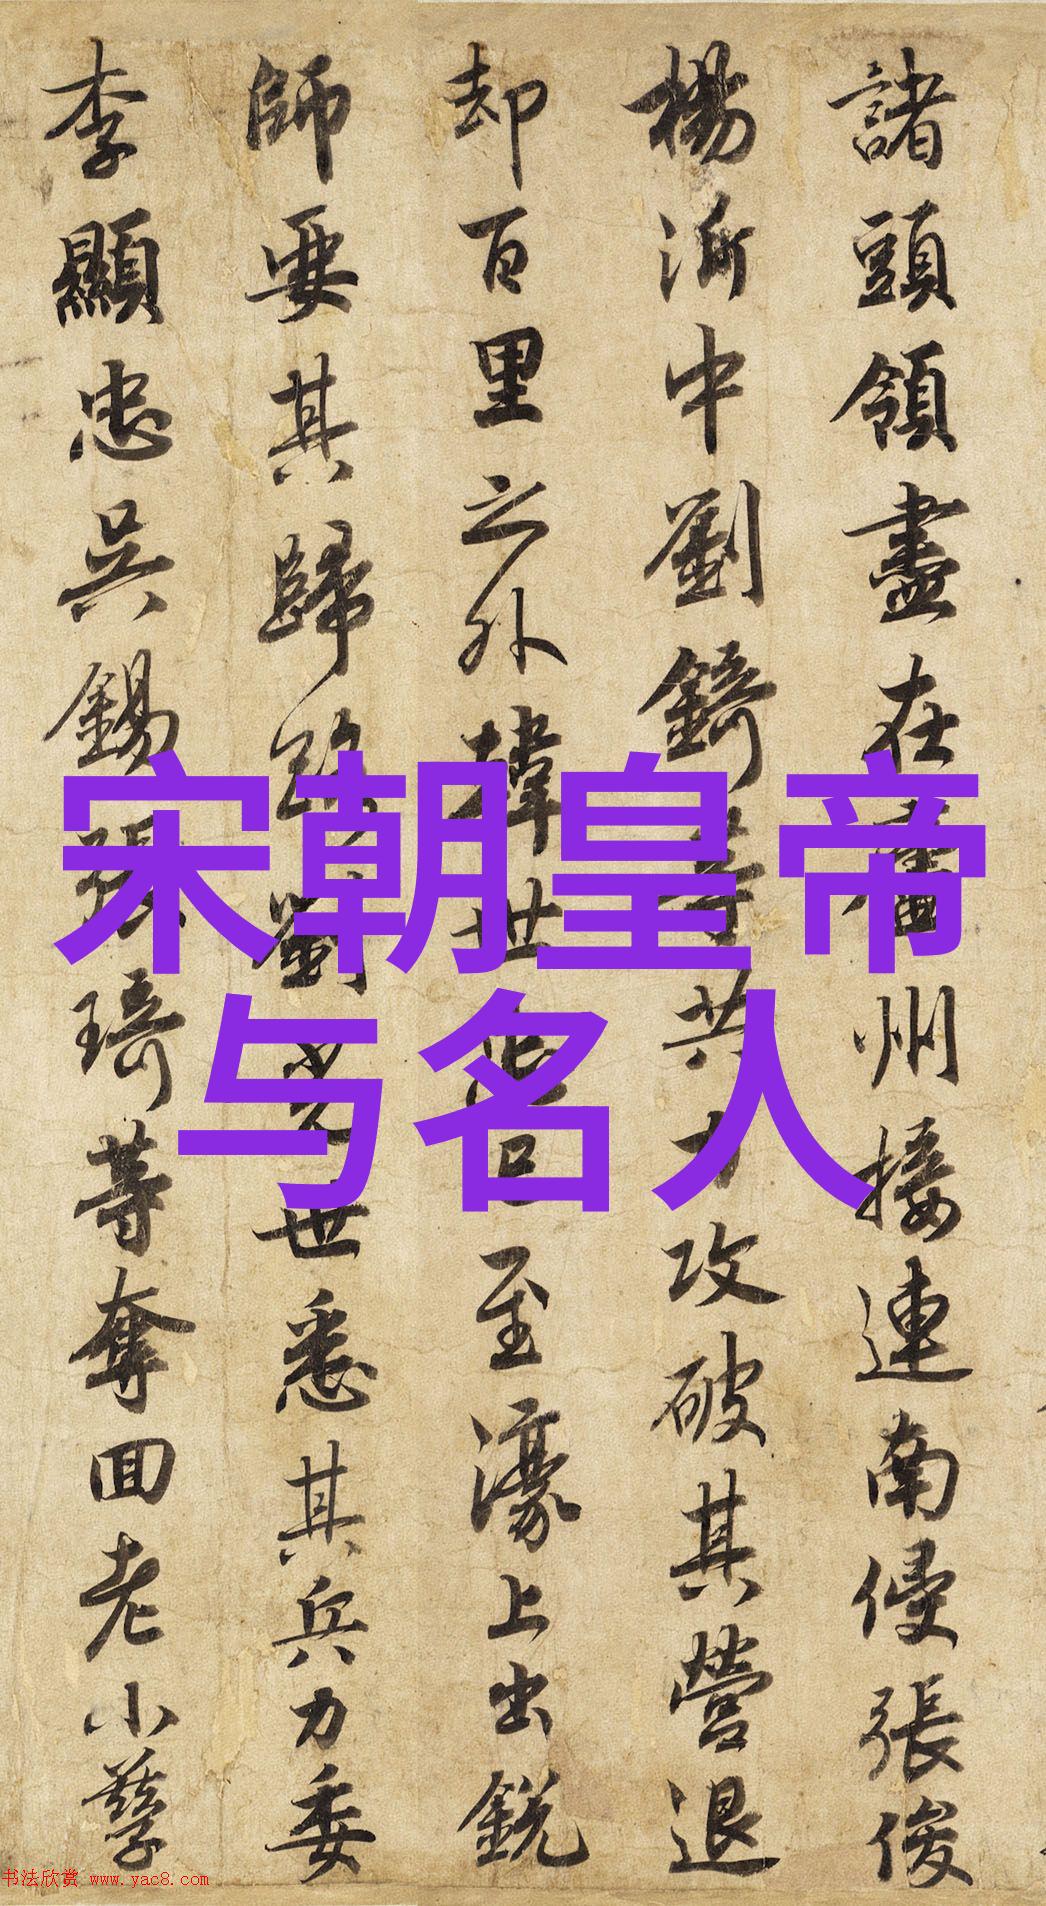 諸頭領盡在廬州接連南侵張俊
楊沂中劉錡等共力攻破其營退
却百里之外韓世忠已至濠上出銳
師要其歸路劉光世悉其兵力委
李顯忠吳錫張琦等奪回老小孳
宋朝皇帝
与名人
书法欣赏 www.yac8.com